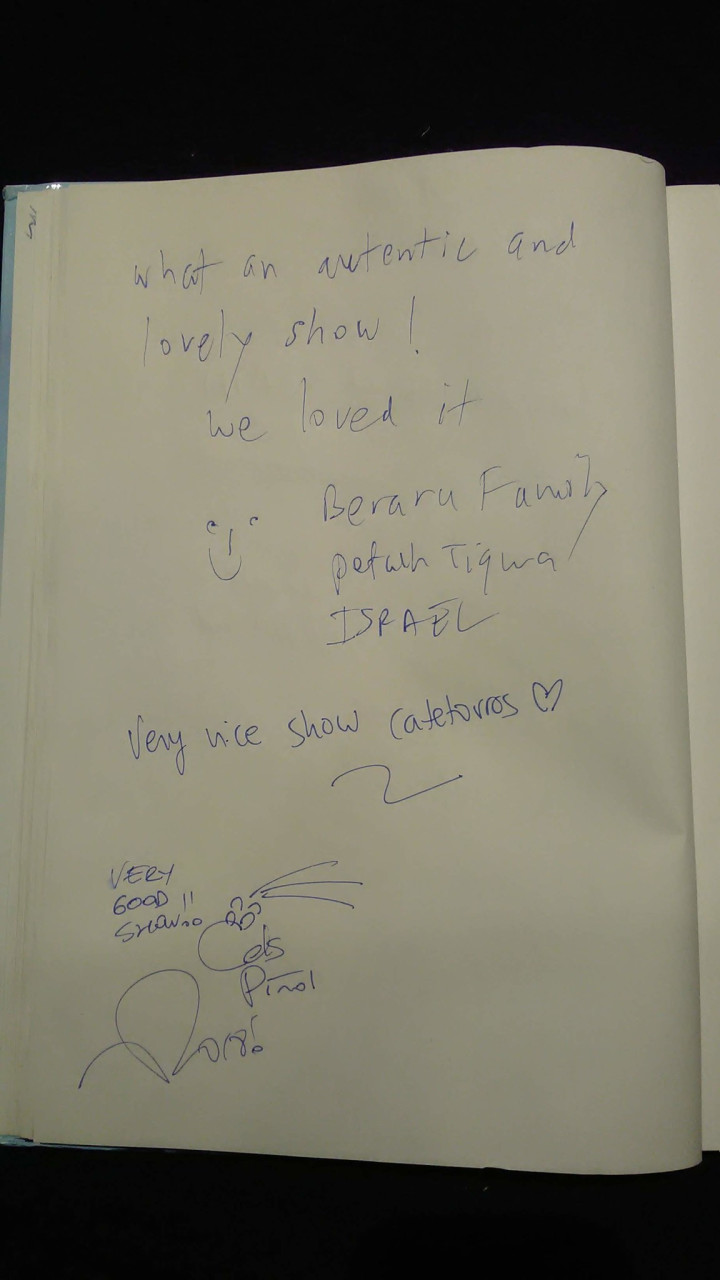 what an autentic and
lovely show!
we loved it
Beraru Family
petah Tiqwa
ISRAEL
Very nice show catetorros ♡
VERY
GOOD !!
SHOW!!
Cels
Piñol